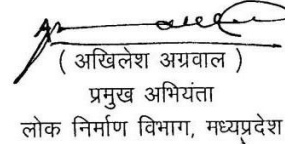 ( अखिलेश अग्रवाल )
प्रमुख अभियंता
लोक निर्माण विभाग, मध्यप्रदेश